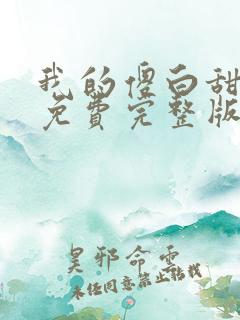 我的傻白甜
免费完整版
昊邪命雲
未任同意禁止转载